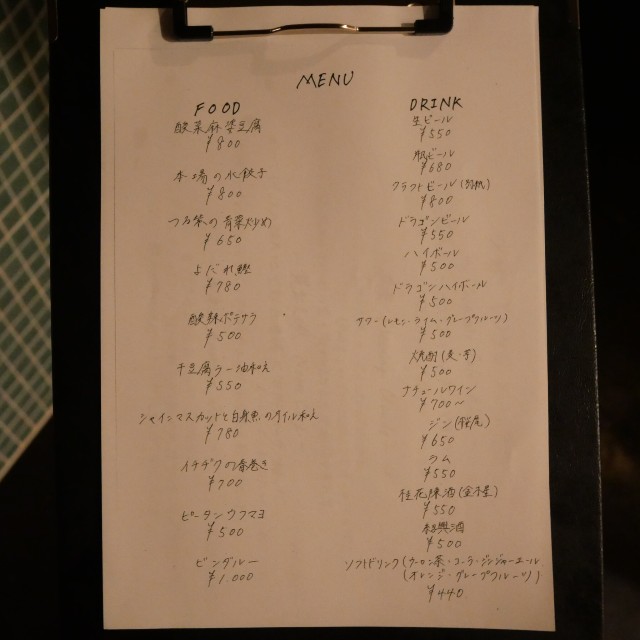 MENU
FOOD
酸菜麻婆豆腐
¥800
本場の水餃子
¥800
の青菜炒め
¥650
よだれ鰹
¥780
酸辣ポテサラ
¥500
干豆腐ラー油和え
¥550
シャインマスカットと白身魚のオイル和え
¥780
イチヂクの春巻き
¥700
ピータンウフマヨ
¥500
ビングルー
¥1.000
DRINK
生ビール
¥550
瓶ビール
¥680
クラフトビール(別紙)
¥800
ドラゴンビール
¥550
ハイボール
¥500
ドラゴンハイボール
¥500
サワー(レモン・ライム・グレープフルーツ)
¥500
焼酎(麦・芋)
¥500
ナチュールワイン
¥700〜
ジン(桜尾)
¥650
ラム
¥550
桂花陳酒(金木星)
¥550
紹興酒
¥500
ソフトドリンク(ウーロン茶・コーラ・ジンジャーエール
(オレンジ・グレープフルーツ))
¥440